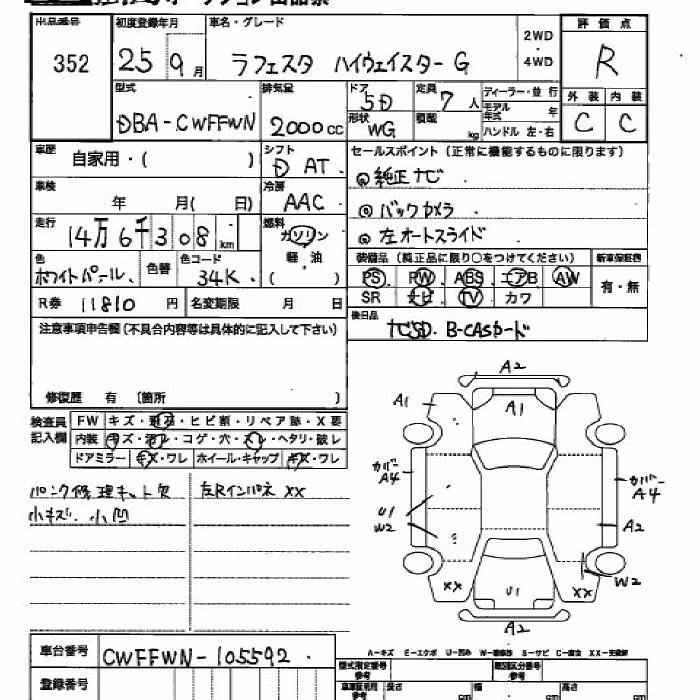 出品番号 初度登録年月 車名・グレード 評価点
352 25 9月 ラフェスタ ハイウェイスターG 2WD・4WD R
型式 排気量 ドア 定員 ディーラー・並行 外装 内装
DBA-CWFFWN 2000cc 5D 7人 モデル年式 年 C C
形状 WG 積載 kg ハンドル 左・右
車歴 自家用・( ) シフト D AT セールスポイント(正常に機能するものに限ります)
◎純正ナビ
車検 年 月( 日) 冷房 AAC
◎バックカメラ
走行 14万6千308km 燃料 ガソリン
◎左オートスライド
軽・油
( )
色 ホワイトパール 色替 色コード 34K
装備品(純正品に限り○をつけてください) 新車保証書
PS PW ABS エアB AW 有・無
SR ナビ TV カワ
R券 11810円 名変期限 月 日
後日品
ナビSD. B-CASカード
注意事項申告欄(不具合内容等は具体的に記入して下さい)
修復歴 有 〔箇所 〕
検査員記入欄 FW キズ・飛石・ヒビ割・リペア跡・X要
内装 キズ・汚レ・コゲ・穴・スレ・ヘタリ・破レ
ドアミラー キズ・ワレ ホイール・キャップ キズ・ワレ
パンク修理キット欠 左Rインパネ XX
小キズ. 小凹
A2
A1 A1
カバーA4 カバーA4
U1
W2 A2
W2
XX U1 XX
A2
A-キズ E-エクボ U-凹み W-補修跡 S-サビ C-腐食 XX-交換済
車台番号 CWFFWN-105592
登録番号
型式指定番号 類別区分番号
長さ cm 幅 cm 高さ cm